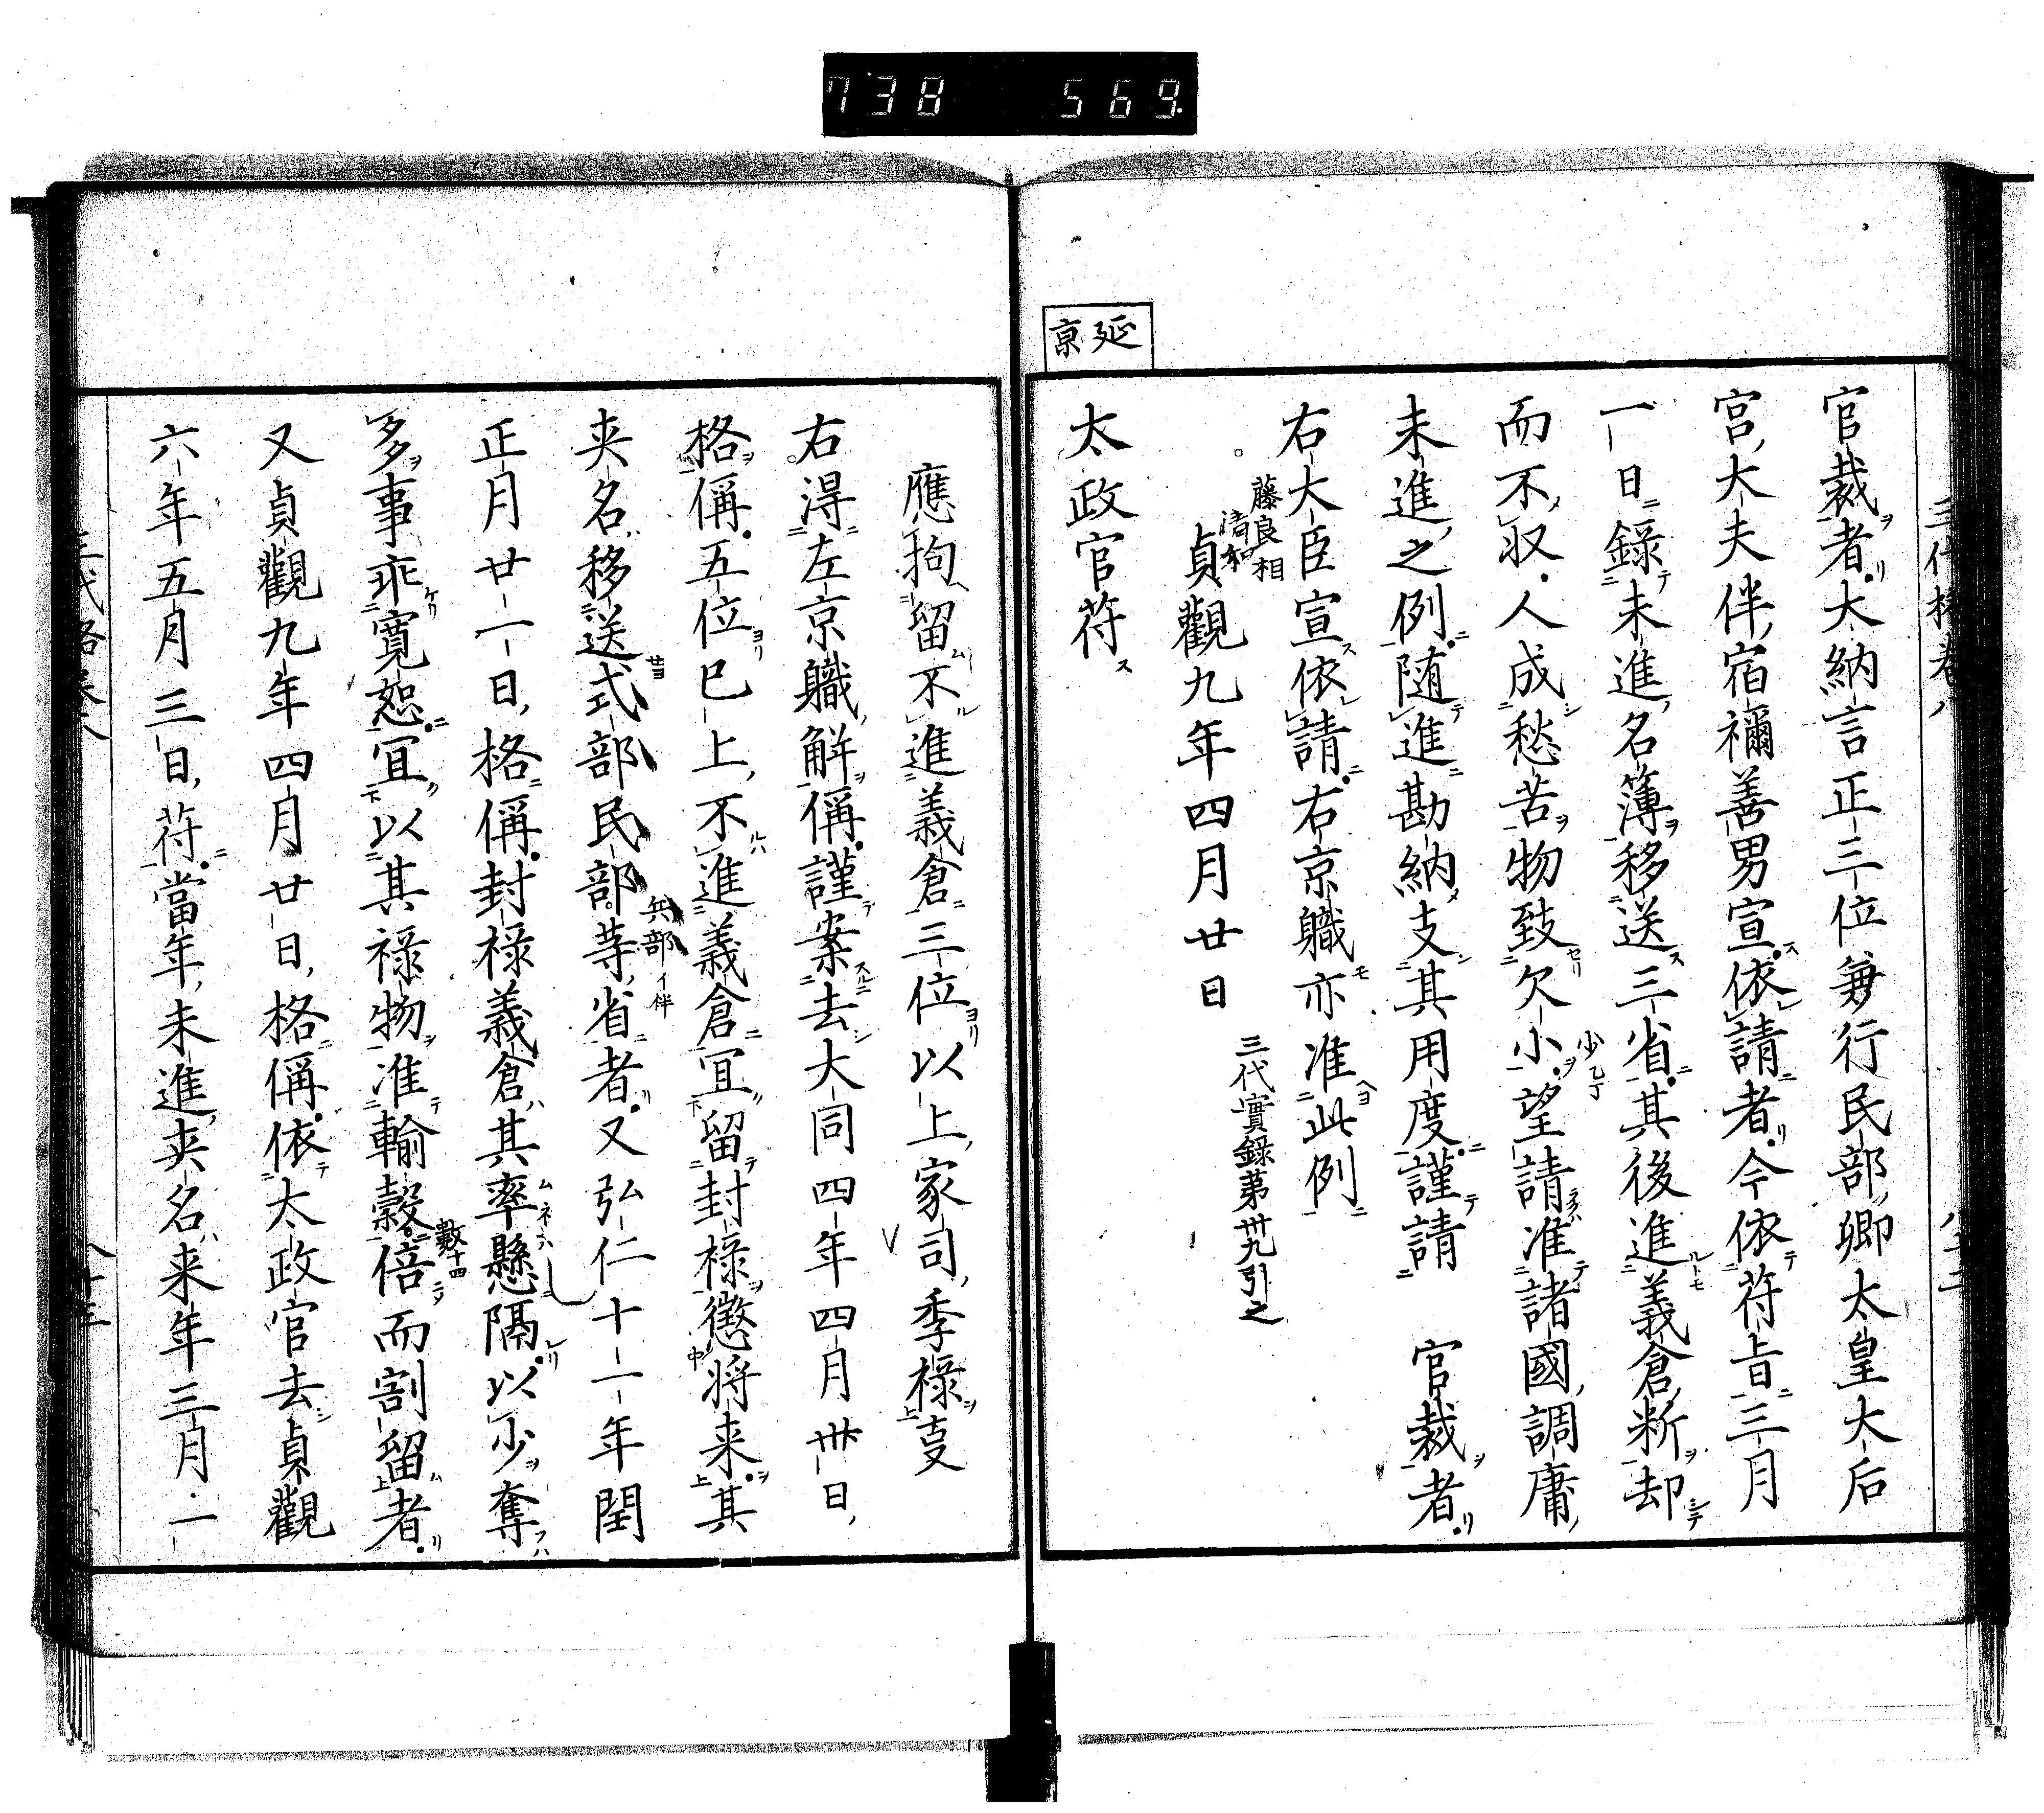 738 569
三代格卷八
官裁者大納言正三位兼行民部卿太皇大后
宮大夫伴宿禰善男宣依請者今依符旨三月
一日錄未進名簿移送三省其後進義倉析却
而不収人成愁苦物致欠小望請准諸國調庸
少乙丁
未進之例随進勘納支其用度謹請 官裁者
右大臣宣依請右京職亦准此例
藤良相
清和
貞觀九年四月廿日
三代實錄第卅九引之
延
京
太政官符
應拘留不進義倉三位以上家司季禄㕝
右淂左京職解偁謹案去大同四年四月卅日
格偁五位已上不進義倉宜留封禄懲将来其
夹名移送式部民部等省者又弘仁十一年閏
兵部イ伴
正月廿一日格偁封禄義倉其率懸隔以少奪
多事乖寛恕宜以其禄物准輸穀倍而割留者
數十四
又貞觀九年四月廿日格偁依太政官去貞觀
六年五月三日符當年未進夹名来年三月一
三代格卷八
八十三